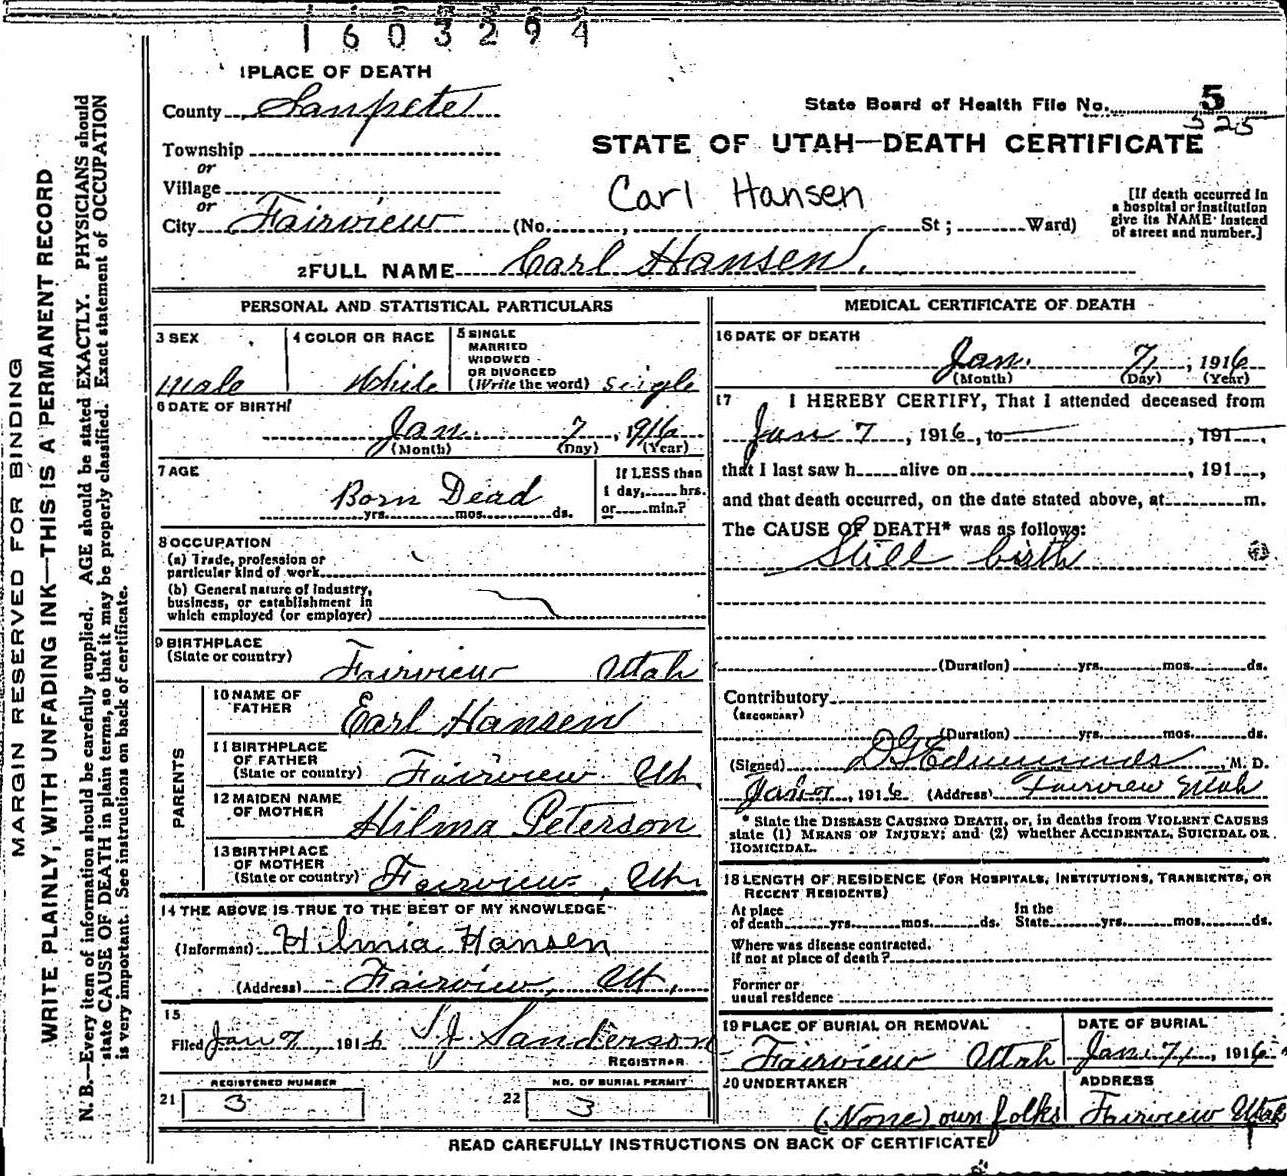 1603294
1 PLACE OF DEATH
County Sanpete
State Board of Health File No. 5
525
Township
or
Village
or
City Fairview (No. , St ; Ward)
STATE OF UTAH—DEATH CERTIFICATE
Carl Hansen
[If death occurred in
a hospital or institution
give its NAME instead
of street and number.]
2 FULL NAME Carl Hansen.
PERSONAL AND STATISTICAL PARTICULARS
3 SEX
male
4 COLOR OR RACE
White
5 SINGLE
MARRIED
WIDOWED
OR DIVORCED
(Write the word) single
6 DATE OF BIRTH
Jan. 7, 1916
(Month) (Day) (Year)
7 AGE
Born Dead
yrs. mos. ds.
If LESS than
1 day, hrs.
or min.?
8 OCCUPATION
(a) Trade, profession or
particular kind of work
(b) General nature of industry,
business, or establishment in
which employed (or employer)
9 BIRTHPLACE
(State or country) Fairview Utah
PARENTS
10 NAME OF
FATHER Earl Hansen
11 BIRTHPLACE
OF FATHER
(State or country) Fairview Ut
12 MAIDEN NAME
OF MOTHER Hilma Peterson
13 BIRTHPLACE
OF MOTHER
(State or country) Fairview, Ut.
14 THE ABOVE IS TRUE TO THE BEST OF MY KNOWLEDGE
(Informant) Hilmia Hansen
(Address) Fairview, Ut.,
15
Filed Jan 7, 1916 S.J. Sanderson
REGISTRAR
21 REGISTERED NUMBER
3
22 NO. OF BURIAL PERMIT
3
MEDICAL CERTIFICATE OF DEATH
16 DATE OF DEATH
Jan. 7, 1916
(Month) (Day) (Year)
17 I HEREBY CERTIFY, That I attended deceased from
Jan 7, 1916, to , 191 ,
that I last saw h alive on , 191 ,
and that death occurred, on the date stated above, at m.
The CAUSE OF DEATH* was as follows:
Still birth
(Duration) yrs. mos. ds.
Contributory
(SECONDARY)
(Duration) yrs. mos. ds.
(Signed) D G Edmunds M. D.
Jan 7, 1916 (Address) Fairview Utah
* State the DISEASE CAUSING DEATH, or, in deaths from VIOLENT CAUSES
state (1) MEANS OF INJURY; and (2) whether ACCIDENTAL, SUICIDAL OR
HOMICIDAL.
18 LENGTH OF RESIDENCE (FOR HOSPITALS, INSTITUTIONS, TRANSIENTS, OR
RECENT RESIDENTS)
At place
of death yrs. mos. ds.
In the
State yrs. mos. ds.
Where was disease contracted,
if not at place of death?
Former or
usual residence
19 PLACE OF BURIAL OR REMOVAL
Fairview Utah
DATE OF BURIAL
Jan. 7, 1916
20 UNDERTAKER
(None) own folks
ADDRESS
Fairview Utah
READ CAREFULLY INSTRUCTIONS ON BACK OF CERTIFICATE
MARGIN RESERVED FOR BINDING
WRITE PLAINLY, WITH UNFADING INK—THIS IS A PERMANENT RECORD
N. B.—Every item of information should be carefully supplied. AGE should be stated EXACTLY. PHYSICIANS should
state CAUSE OF DEATH in plain terms, so that it may be properly classified. Exact statement of OCCUPATION
is very important. See instructions on back of certificate.